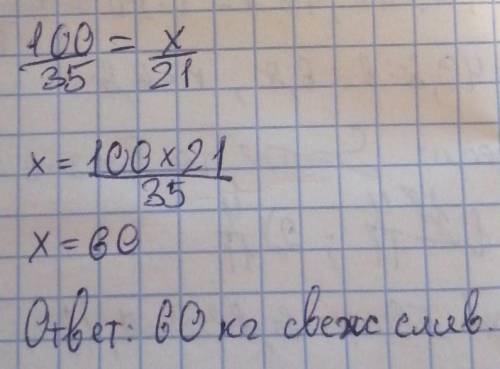 100/35 = x/21
x = 100 × 21/35
x = 60
Ответ: 60 кг свеж слив.